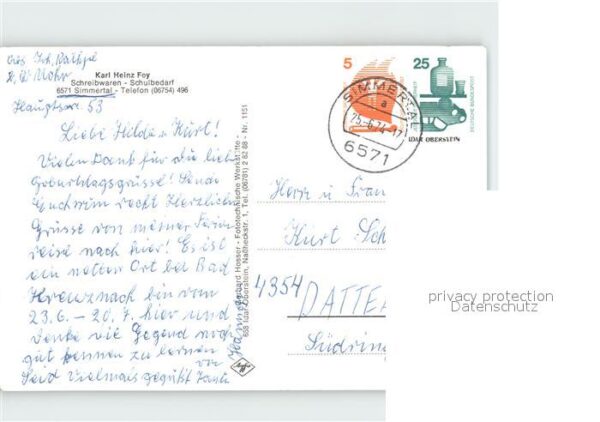 Karl Heinz Foy
Schreibwaren - Schulbedarf
6571 Simmertal - Telefon (06754) 496
Hauptstr. 53
Liebe Hilde u. Kurt!
Vielen Dank für die lieb
Geburtstagsgrüsse! Sende
Euch nun recht herzliche
Grüsse von meiner Ferien
reise nach hier! Es ist
ein netter Ort bei Bad
Kreuznach bin vom
23.6. - 20.7. hier und
denke die Gegend noch
gut kennen zu lernen
Seid Vielmals gegrüßt Tante
von
Gebhard Hosser - Fototechnische Werkstätte -
658 Idar-Oberstein, Naßheckstr. 1, Tel. (06781) 2 62 88 - Nr. 1151
Agfa
5
25
DEUTSCHE BUNDESPOST
IDAR-OBERSTEIN
SIMMERTAL
a
25.-6.74-17
6571
Herr u Frau
Kurt Sch
4354 DATTE
Südrin
privacy protection
Datenschutz